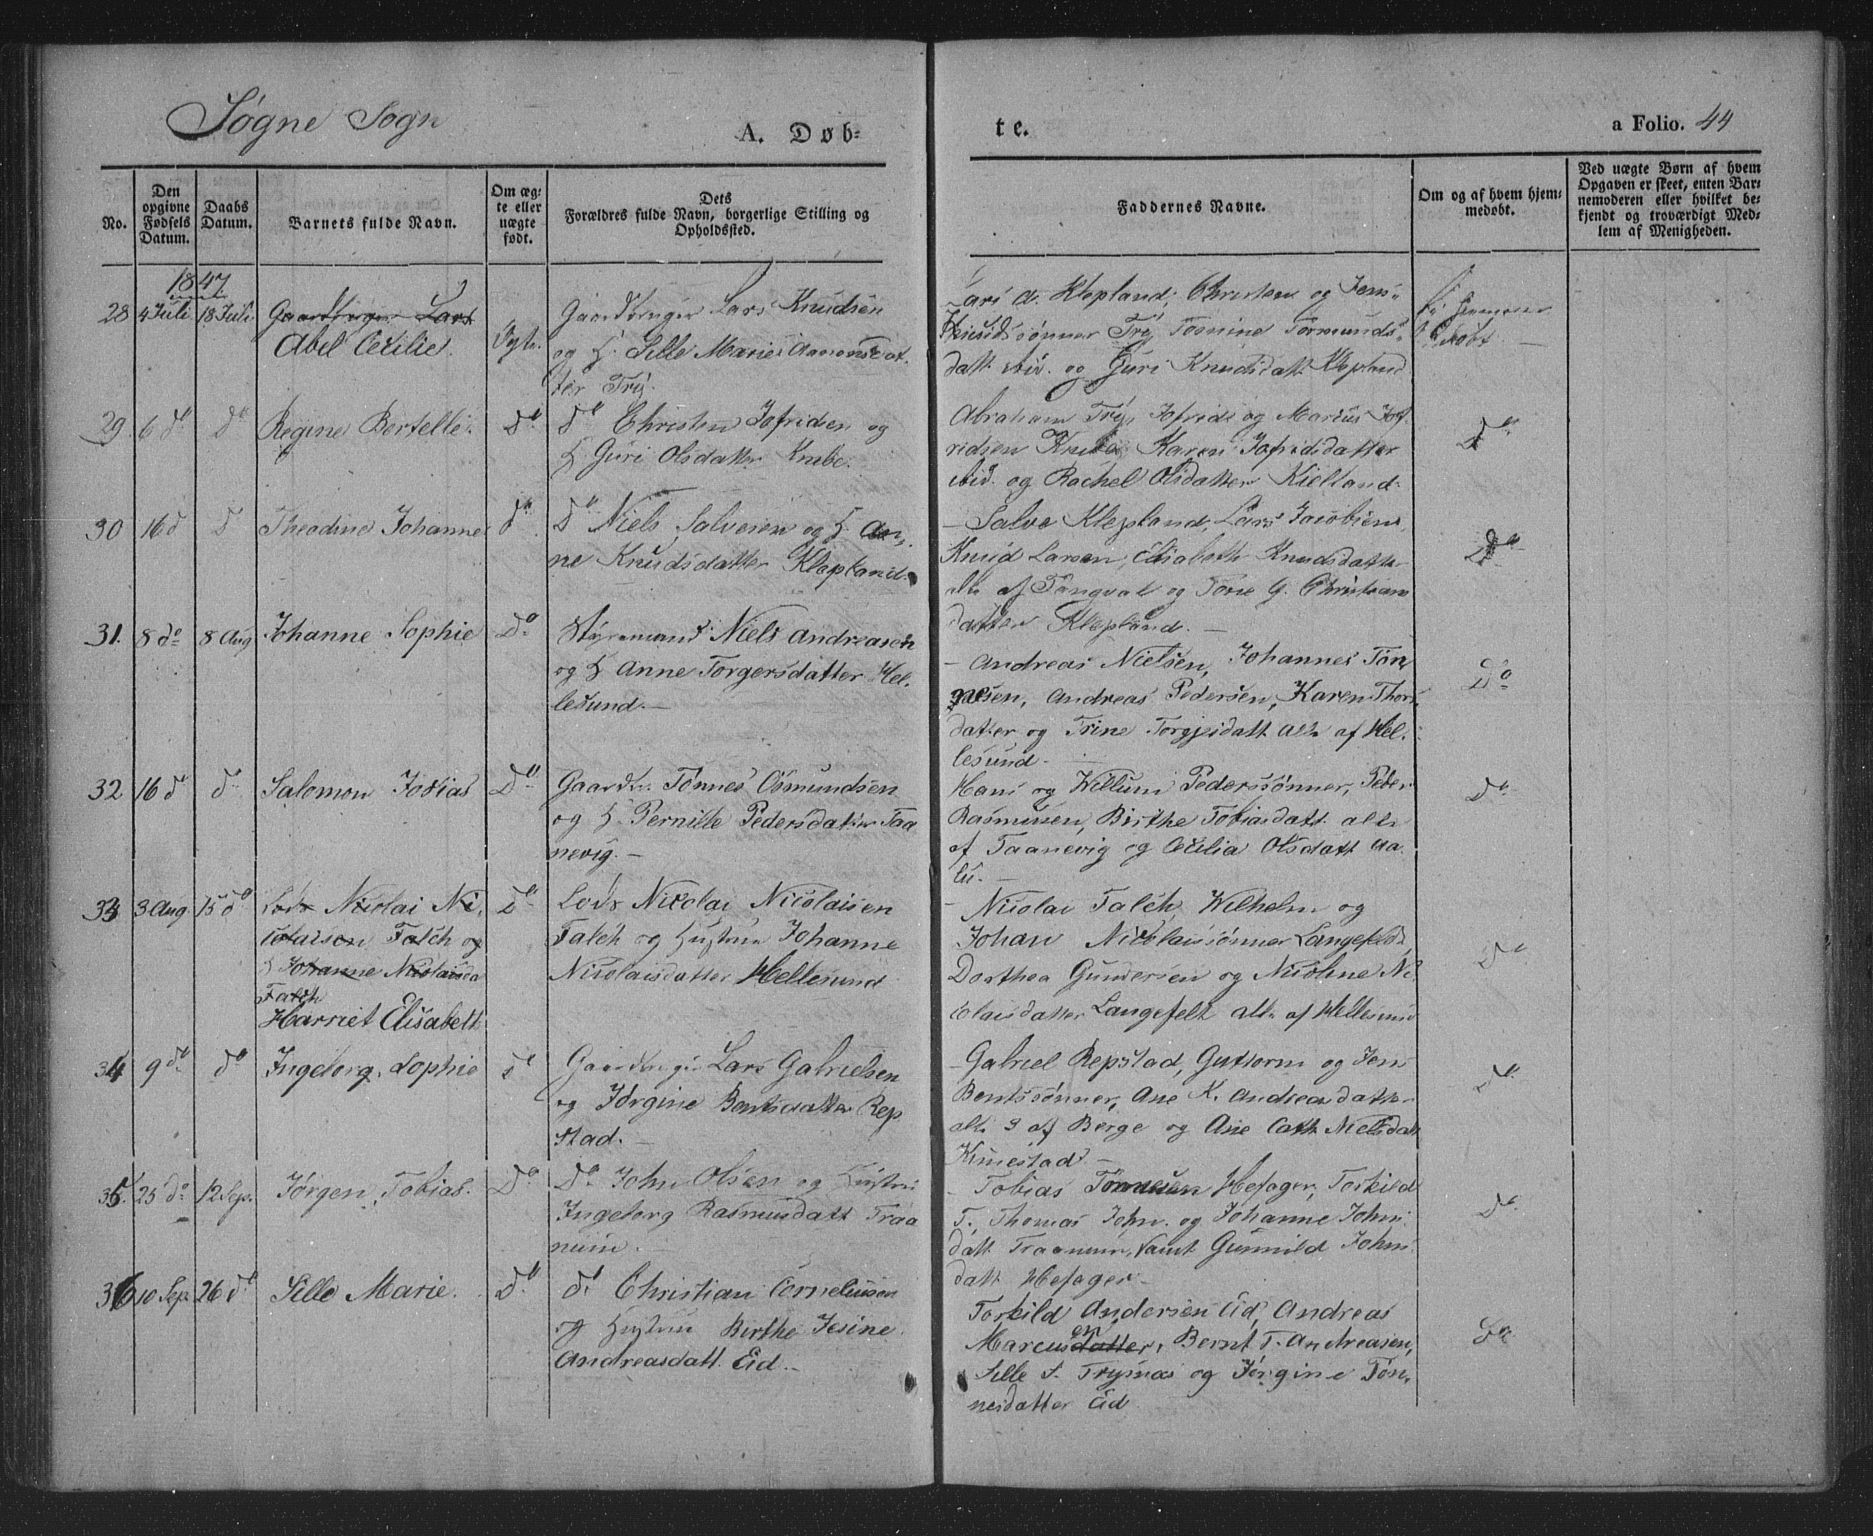 Søgne Sogn
A. Døb-
te.
a Folio. 44
No.
Den opgivne Fødsels Datum.
Daabs Datum.
Barnets fulde Navn.
Om æg-
te eller
uægte
født.
Dets
Forældres fulde Navn, borgerlige Stilling og
Opholdssted.
Faddernes Navne.
Om og af hvem hjem-
medøbt.
Ved uægte Børn af hvem
Opgaven er skeet, enten Bar-
nemoderen eller hvilket be-
kjendt og troværdigt Med-
lem af Menigheden.
1847
28 4 Juli 18 Juli Gaardbruger Lars
Abel Cecilie.
Ægte.
Gaardbruger Lars Knudsen
og H. Sille Marie Aanonsdat-
ter Try.
Lars A. Klepland, Christen og Jens
Knudssønner Try, Tomine Tormunds-
datt ibid. og Guri Knudsdatt Klepland
29 6 do do Regine Bertelle. Do
do Christen Jofridsen og
H. Guri Olsdatter Knibe.
Abraham Try, Jofrids og Marcus Jof-
ridsen Knibe, Karen Jofridsdatter
ibid. og Rachel Olsdatter Kielland.
do
30 16 d d Theodine Johanne do
do Niels Salvesen og H. An-
ne Knudsdatter Klepland.
Salve Klepland, Lars Jacobsen,
Knud Larsen, Elisabeth Knudsdatter
alle af Tangval og Tone G. Christians
datter Klepland.
do
31. 8 do 8 Aug Johanne Sophie Do
Styrmand Niels Andreasen
og H Anne Torgersdatter Hel-
lesund.
Andreas Nielsen, Johannes Tør-
gesen, Andreas Pedersen, Karen Thors
datter og Trine Torgjesdatt alle af Hel-
lesund.
Do
32 16 d do Salomon Tobias Do
Gaardbr. Tønnes Osmundsen
og H. Pernille Pedersdatter Taa
nevig.
Hans og Willum Pederssønner, Peder
Rasmussen, Birthe Tobiasdatt alle
af Taanevig og Cecilia Olsdatt Aa-
lu.
Do
33 3 Aug 15 do Lods Nicolai Ni-
colaisen Falch og
H Johanne Nicolaisda
Falch
Harriet Elisabeth
Do
Lods Nicolai Nicolaisen
Falch og Hustru Johanne
Nicolaisdatter Hellesund
Nicolai Falch, Wilhelm og
Johan Nicolaissønner Langefeldt,
Dorthea Gundersen og Nicoline Ni
colaisdatter Langefelt alle af Hellesund
Do
34 9 do do Ingeborg Sophie do
Gaardbruger Lars Gabrielsen
og Jørgine Bentsdatter Rep
stad.
Gabriel Repstad, Guttorm og Jens
Bentssønner, Ane K. Andreasdatter
alle 3 af Berge og Ane Cath Nielsdatt
Kinestad
Do
35 25 do 12 Sep. Jørgen Tobias. Do
Do John Olsen og Hustru
Ingeborg Rasmusdatt Traa
num.
Tobias Tønnesen Høfager, Torkild
T., Thomas John. og Johanne Johns
datt Traanum, samt Gunnild Johns
datt Høfager
Do
36 10 Sep 26 do Sille Marie. Do
do Christian Corneliusen
og Hustru Birthe Jesine
Andreasdatt. Eid.
Torkild Andersen Eid, Andreas
Marcusdatter en, Bernt T. Andreasen,
Sille S. Trysnæs og Jørgine Tøn-
nesdatter Eid
Do